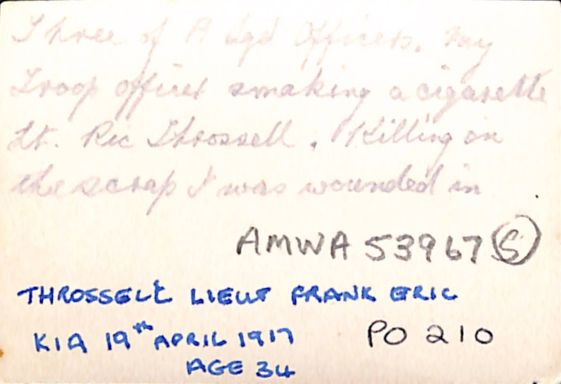 Three of A Sqd Officers. My
Troop officer smoking a cigarette
Lt. Ric Throssell. Killing on
the scrap I was wounded in
AMWA 53967 (S)
THROSSELL LIEUT FRANK ERIC
KIA 19TH APRIL 1917 PO 210
AGE 34